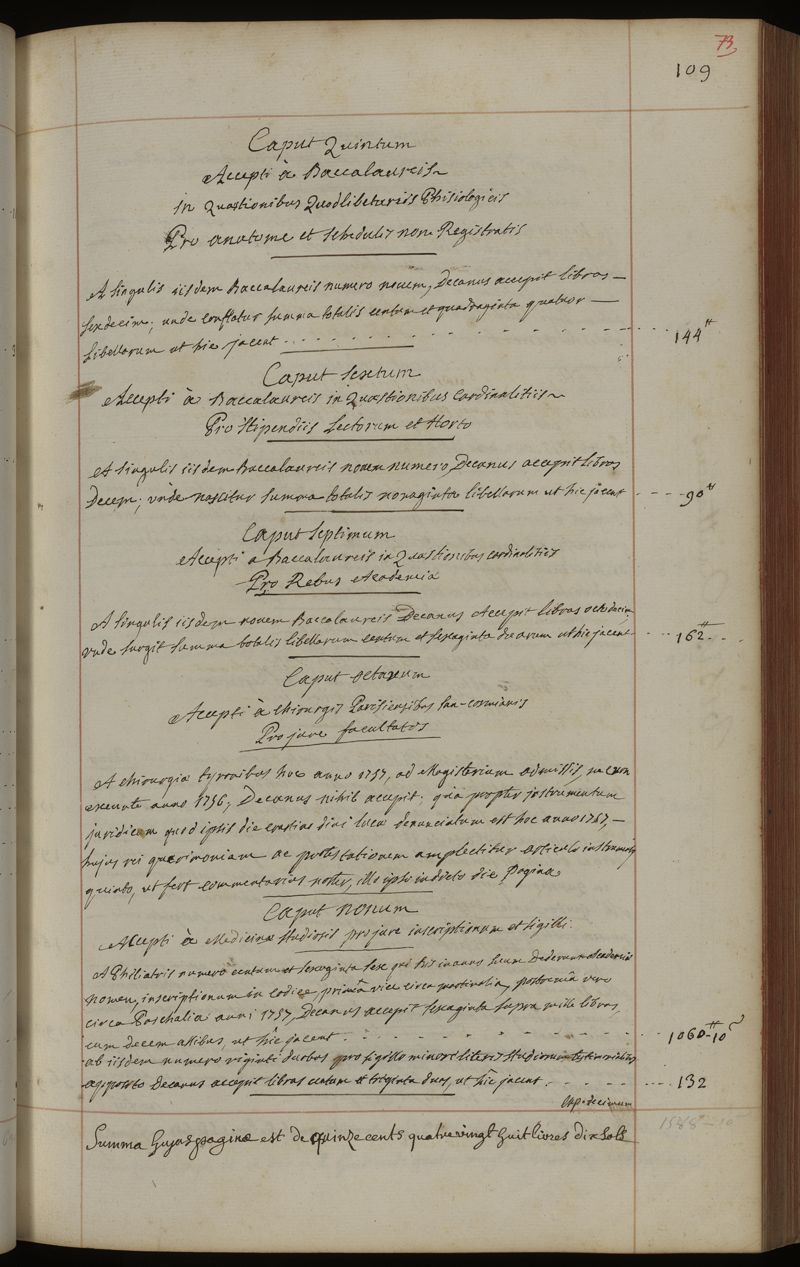 73
109
Caput Quintum
Accepti à Baccalaureis
in Quæstionibus Quodlibetariis Phisiologicis
Pro anatome et schedulis non Registratis
A singulis iisdem Baccalaureis numero novem, Decanus accepit libras
sexdecim; unde conflatur summa totalis centum et quadraginta quatuor
libellarum ut hic jacent 144
Caput Sextum
Accepti à Baccalaureis in Quæstionibus Cardinalitiis
Pro Stipendiis Lectorum et Horto
A singulis iisdem Baccalaureis novem numero, Decanus accepit libras
Decem; unde nascitur summa totalis nonaginta libellarum ut hic jacent 90
Caput Septimum
Accepti a Baccalaureis in Quæstionibus cardinalitiis
Pro Rebus Academia
A singulis iisdem novem Baccalaureis Decanus Accepit libras octodecim
unde surgit summa totalis libellarum centum et sexaginta duarum ut hic jacent 162
Caput octavum
Accepti à chirurgis Parisiensibus San-cosmianis
Pro jure facultatis
A chirurgia tyronibus hoc anno 1757, ad Magisterium admissis, nec non
exeunte anno 1756; Decanus nihil accepit. quâ propter instrumentum
juridicum quod ipsis die crastina divi luca denunciatum est hoc anno 1757,
hujus rei quærimoniam ac protestationem amplectitur articulo instrumenti
quinto, ut fert commentarius noster, illo ipso indicto die pagina
Caput nonum
Accepti à Medicinæ studiosis pro jure inscriptionum et sigilli.
A Philiatris numero centum et sexaginta sex qui bis in anno suum Dederunt Academia
nomen, inscriptionum in codice, primâ vice circa martinalia, postremâ vero
circa Paschalia anni 1757, Decanus accepit sexaginta supra mille libras,
cum decem assibus, ut hîc jacent 1060-10
ab iisdem numero viginti duobus pro sigillo minori literis studiorum testimonialibus
apposito Decanus accepit libras centum et triginta duas, ut hîc jacent 132
Cap. decimum
Summa hujus paginæ est de quinze cents quatre vingt huit livres dix sols 1588-10